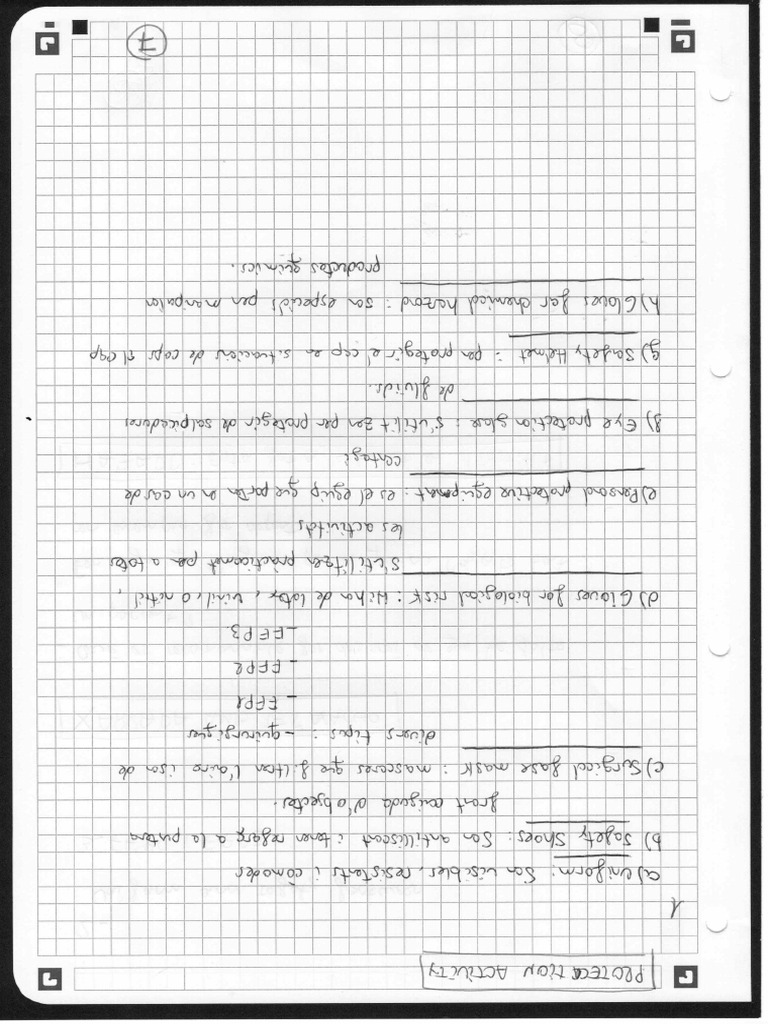 PROTECTION ACTIVITY
1
a) Uniform: Son visibles, resistents i còmodes
b) Safety Shoes: Son antilliscant i tenen reforç a la puntera
front caiguda d'objectes.
c) Surgical fase mask: mascares que filtren l'aire i son de
divers tipus: - quirurgiques
- FFP1
- FFP2
- FFP3
d) Gloves for biological risk: Hi ha de latex, vinil, o nitril,
s'utilitzen pràcticament per a totes
les activitats
e) Personal protective equipment: es el equip que porten en un cas de
contagi
f) Eye protection glase: s'utilitzen per protegir de salpicadures
de fluids.
g) Safety Helmet: per protegir el cap en situacions de cops al cap
h) Gloves for chemical hazard: son especials per manipular
productes químics.
7